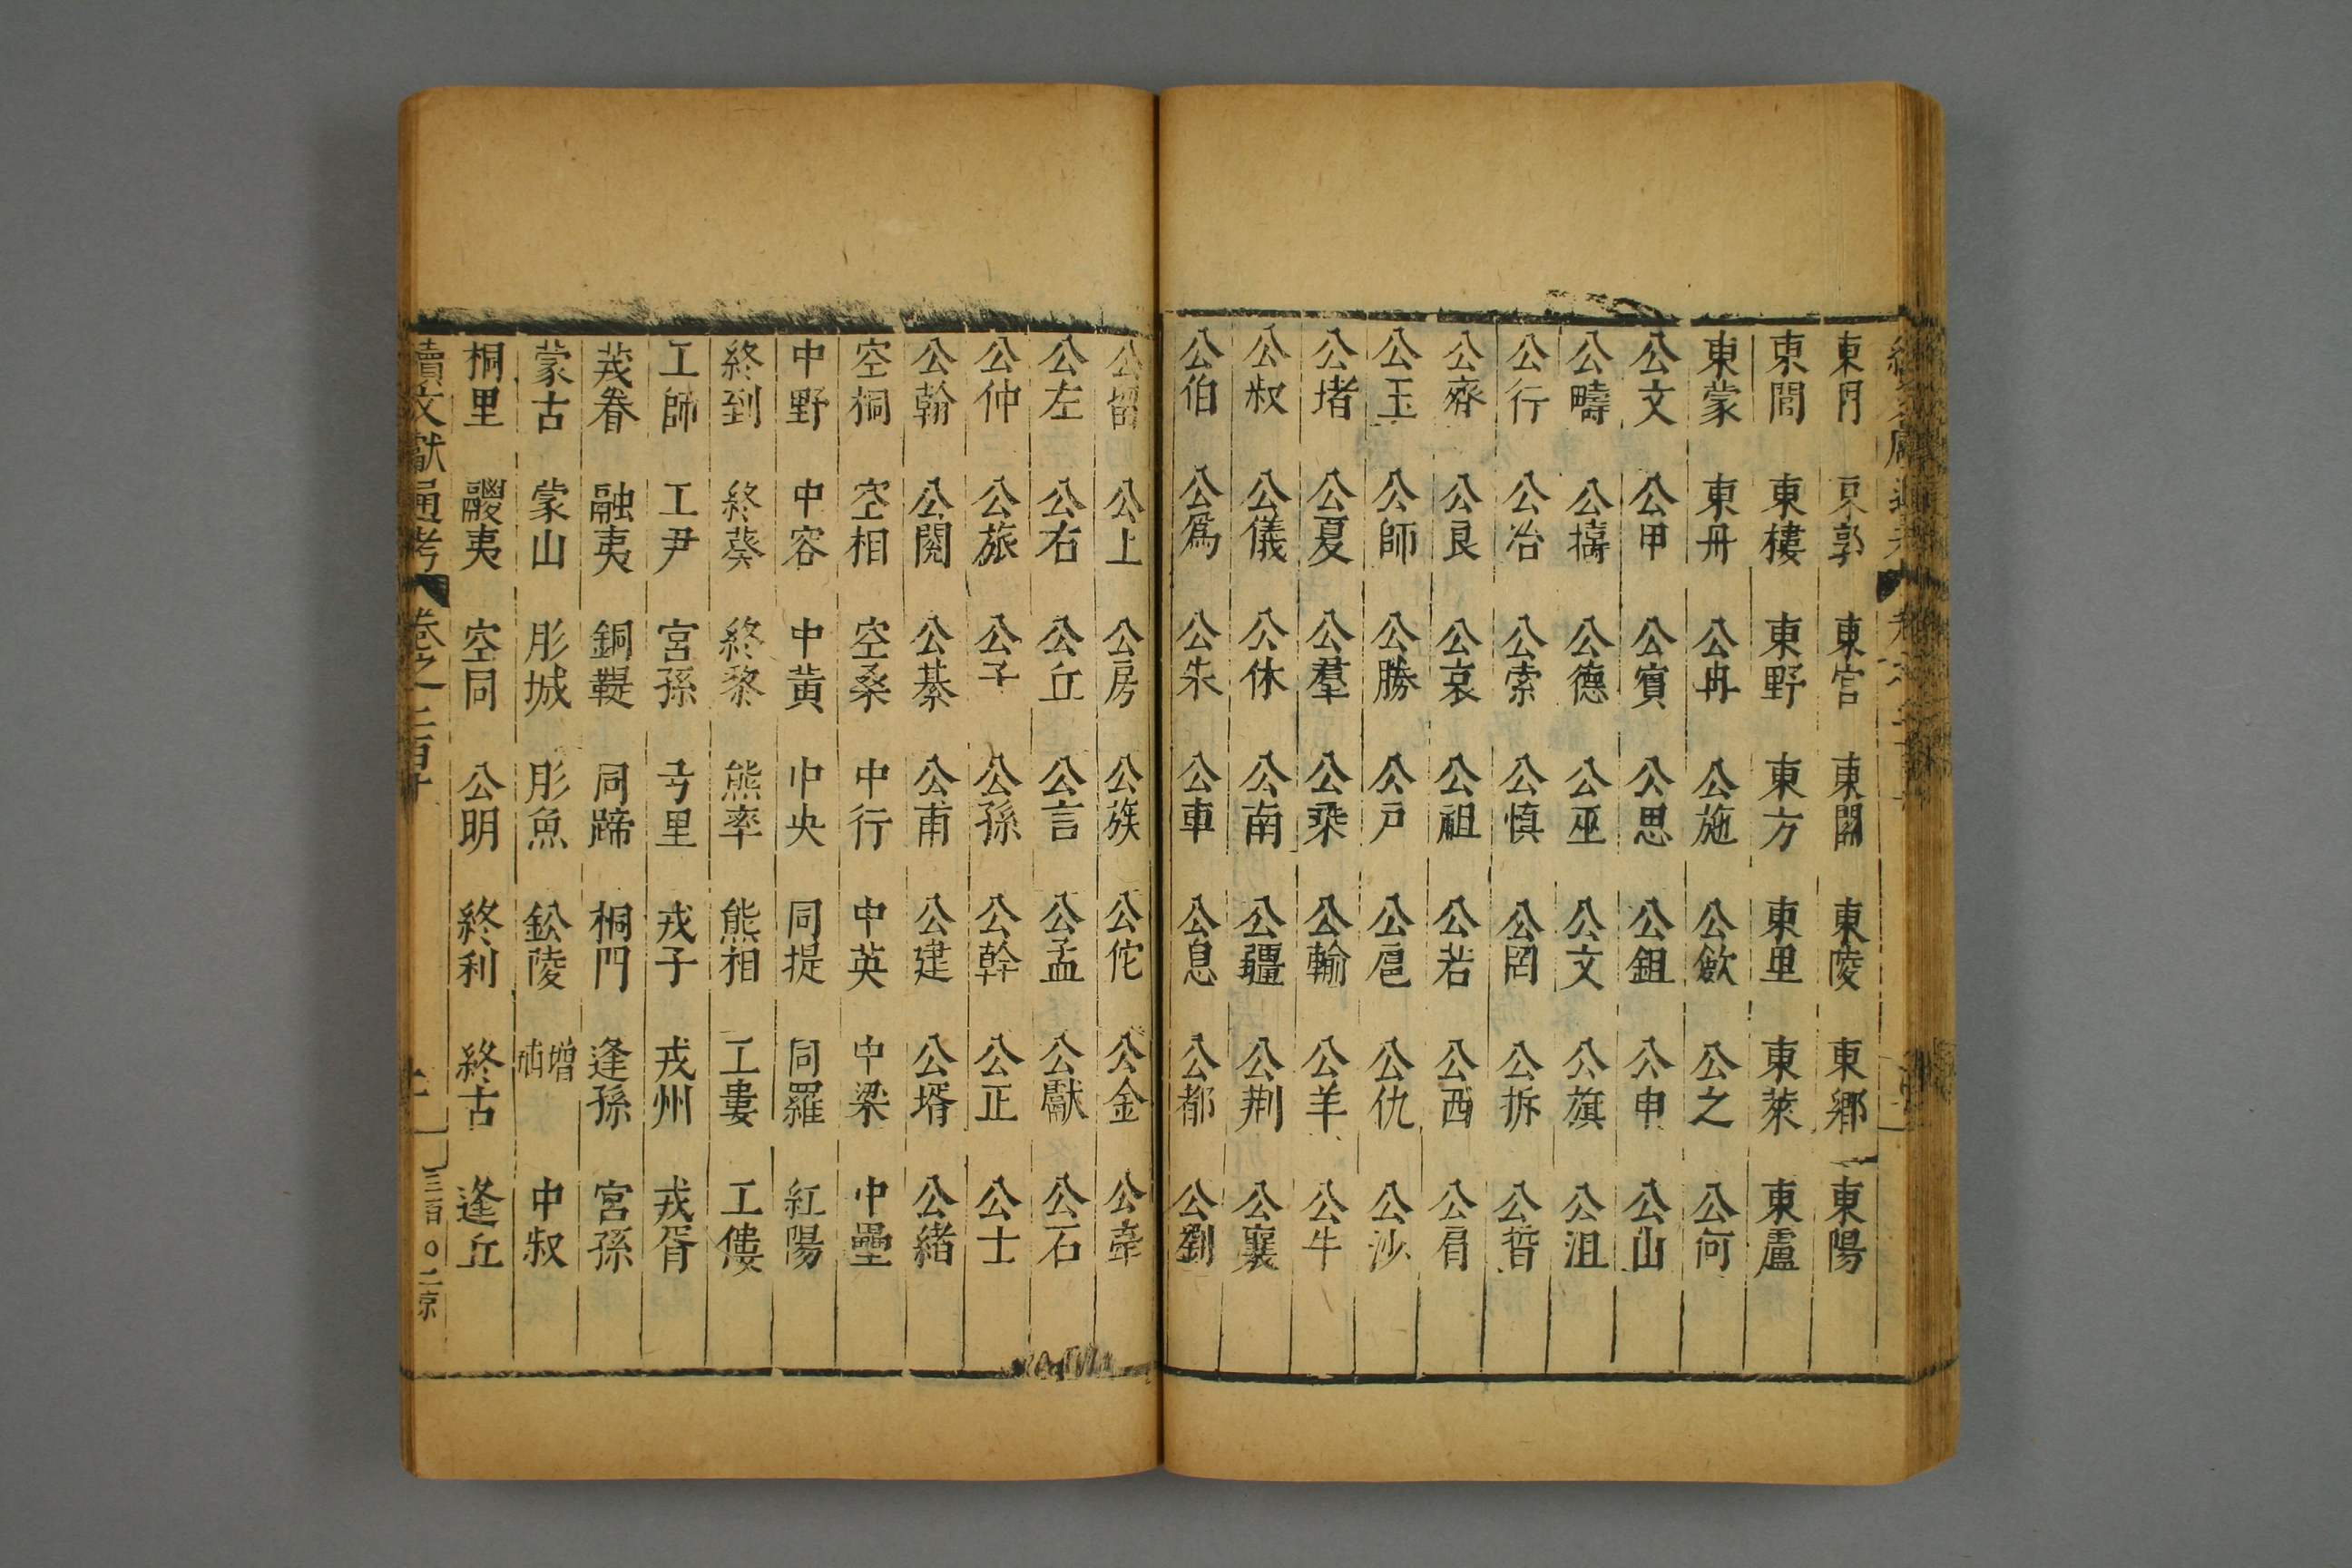 東門 東郭 東宮 東關 東陵 東鄉 東陽
東閭 東樓 東野 東方 東里 東萊 東盧
東蒙 東丹 公冉 公施 公歛 公之 公何
公文 公甲 公賓 公思 公鉏 公申 公山
公疇 公擣 公德 公巫 公文 公旗 公沮
公行 公冶 公索 公慎 公罔 公拆 公晳
公齊 公良 公哀 公祖 公若 公西 公肩
公玉 公師 公勝 公戶 公扈 公仇 公沙
公堵 公夏 公羣 公乘 公輸 公羊 公牛
公叔 公儀 公休 公南 公疆 公荆 公襄
公伯 公爲 公朱 公車 公息 公都 公劉
公留 公上 公房 公族 公佗 公金 公牽
公左 公右 公丘 公言 公孟 公獻 公石
公仲 公旅 公子 公孫 公幹 公正 公士
公翰 公閱 公綦 公甫 公建 公壻 公緒
空桐 空相 空桑 中行 中英 中梁 中壘
中野 中容 中黃 中央 同提 同羅 紅陽
終到 終葵 終黎 熊率 熊相 工婁 工僂
工師 工尹 宮孫 弓里 戎子 戎州 戎胥
茙眷 融夷 銅鞮 同蹄 桐門 逢孫 宮孫
蒙古 蒙山 肜城 肜魚 鈆陵 增補 中叔
桐里 鬷夷 空同 公明 終利 終古 逢丘
續文獻通考 卷之二百十 三百〇二京